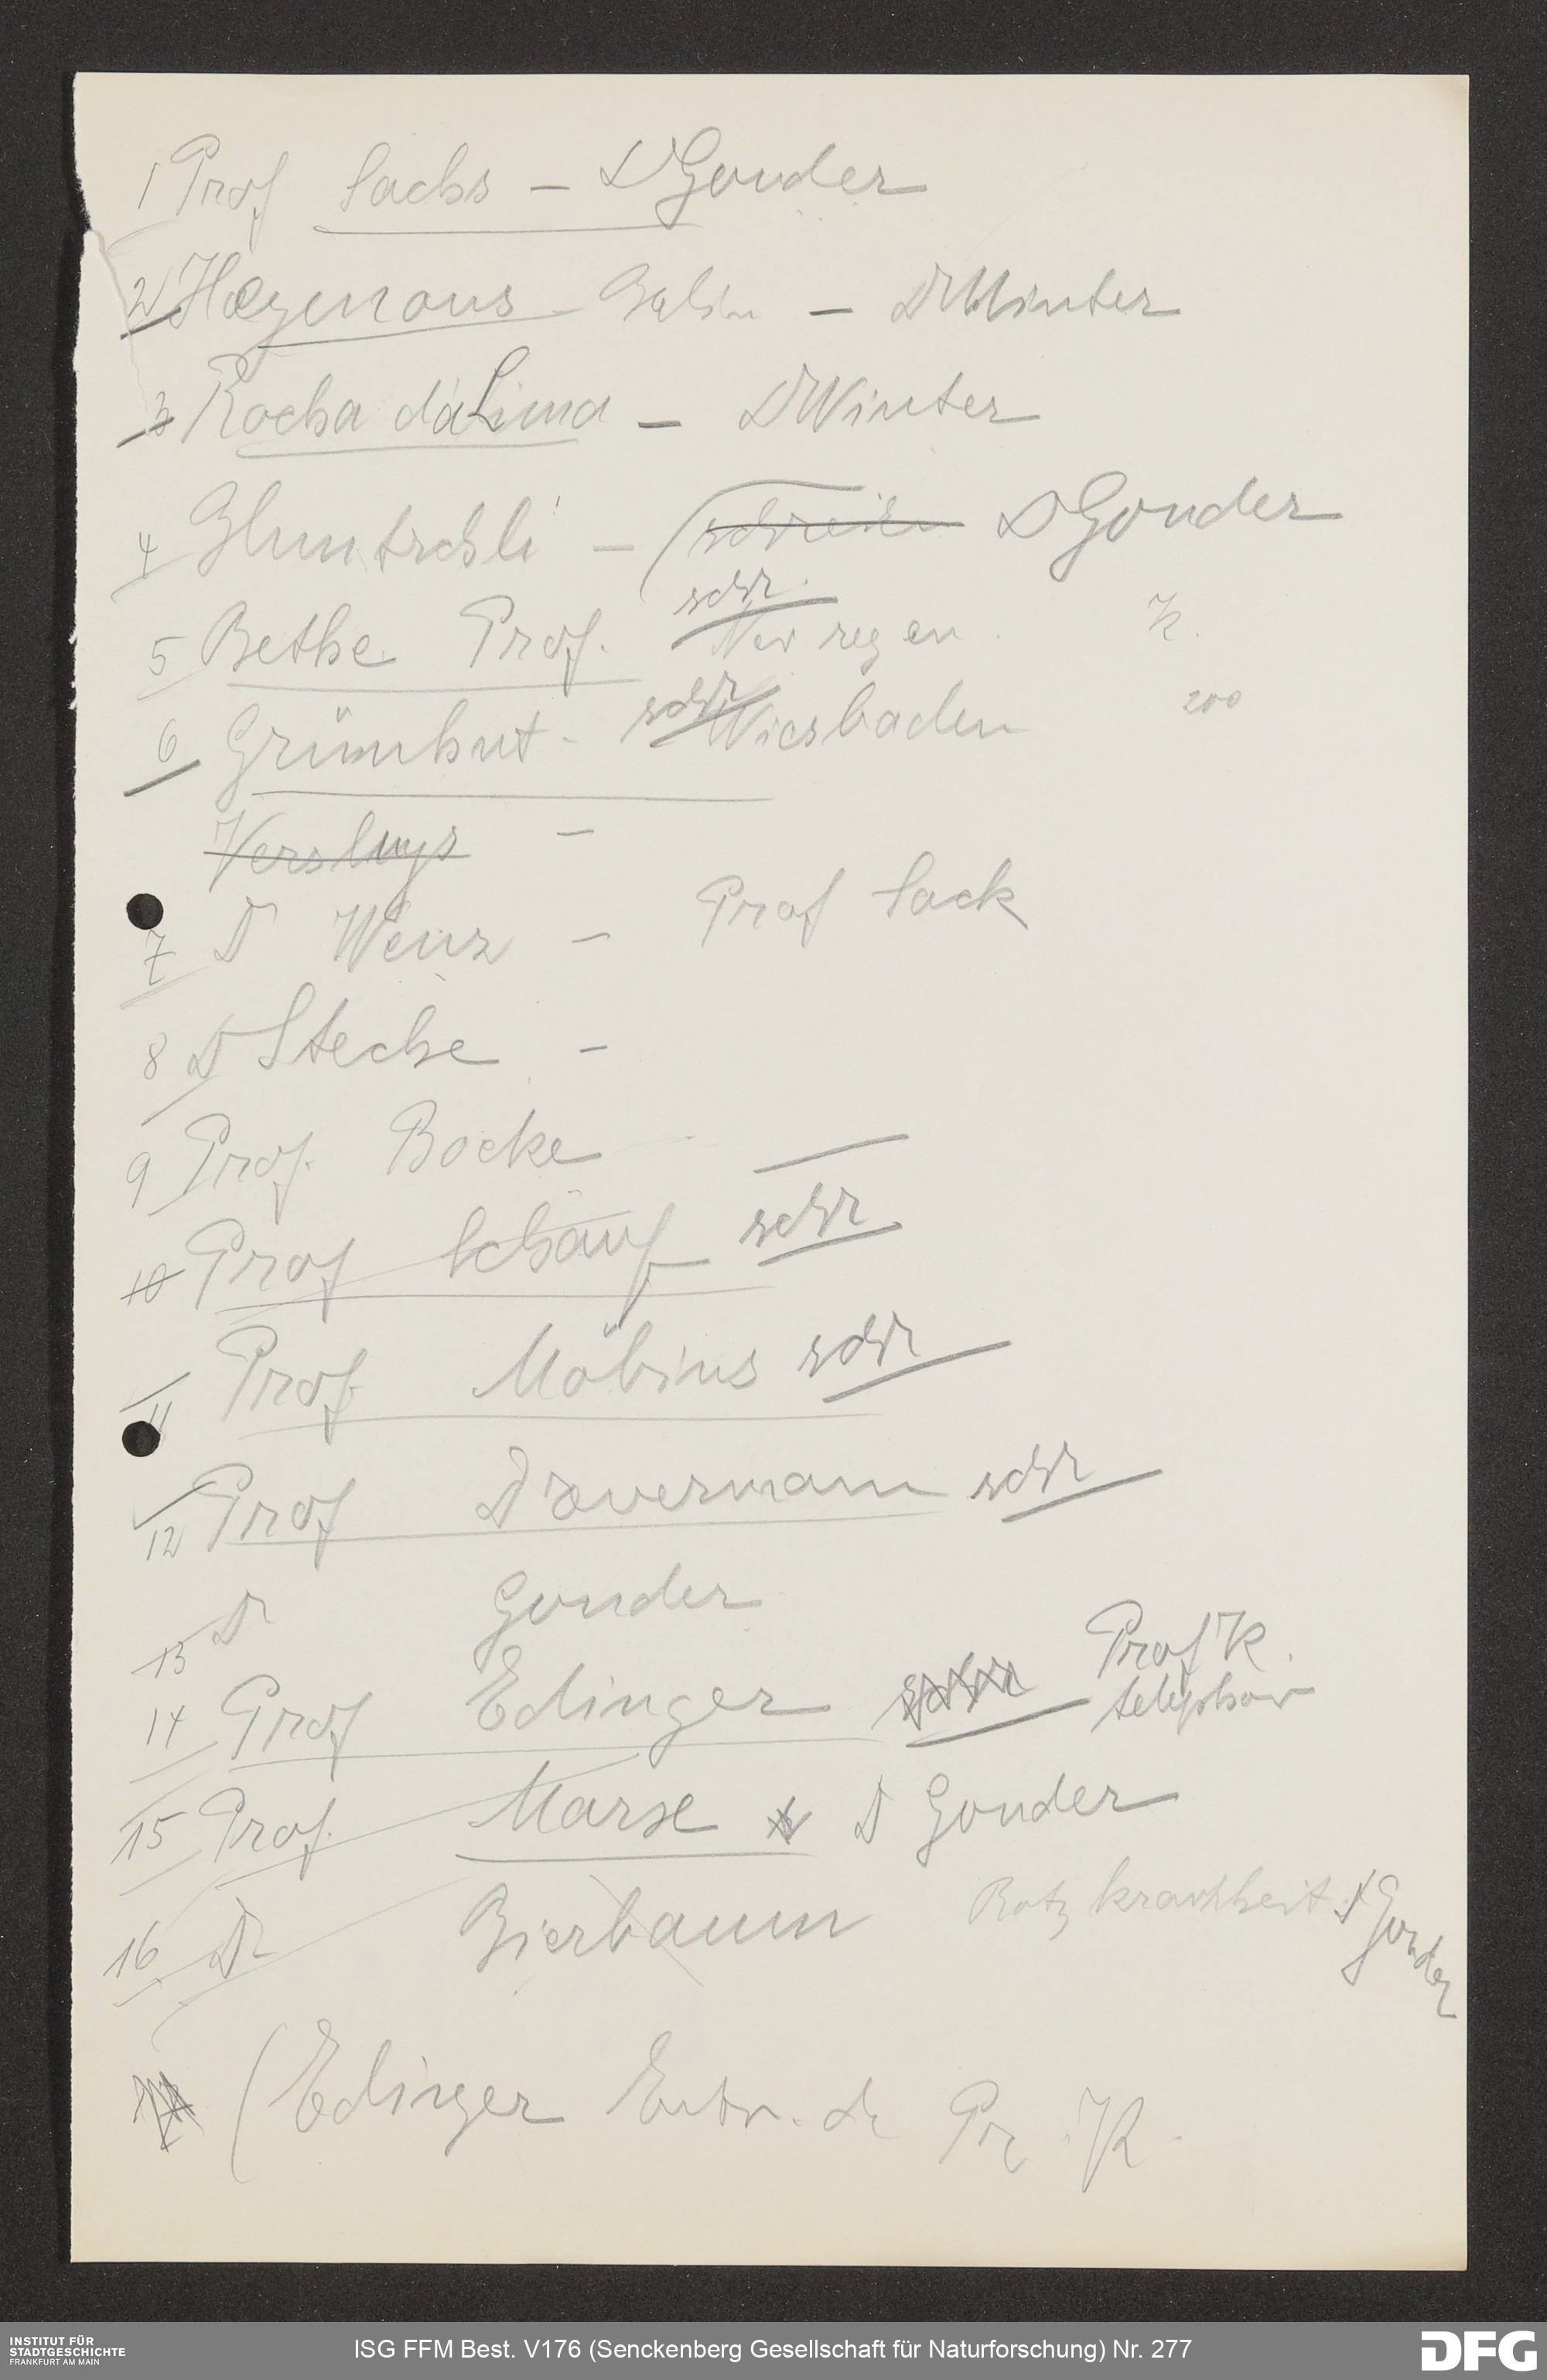 1 Prof Sachs – Dr Gonder
2 Hagenows – Dr Winter
3 Rocha da Lima – Dr Winter
4 Bluntschli – (schreiben Dr Gonder
5 Bethe Prof. schr. Nerregen. K.
6 Grünhut - schr Wiesbaden 200
Versluys –
7 Dr Wenz – Prof Sack
8 Dr Steche –
9 Prof. Boeke –
10 Prof Schauf schr
11 Prof. Möbius schr
12 Prof Drevermann schr
13 Dr Gonder
14 Prof Edinger schr Prof K. telephon
15 Prof. Marse Dr Gonder
16 Dr Bierbaum Rotzkrankheit Dr Gonder
(Edinger Entw. d. Pr. K.
INSTITUT FÜR
STADTGESCHICHTE
FRANKFURT AM MAIN
ISG FFM Best. V176 (Senckenberg Gesellschaft für Naturforschung) Nr. 277
DFG